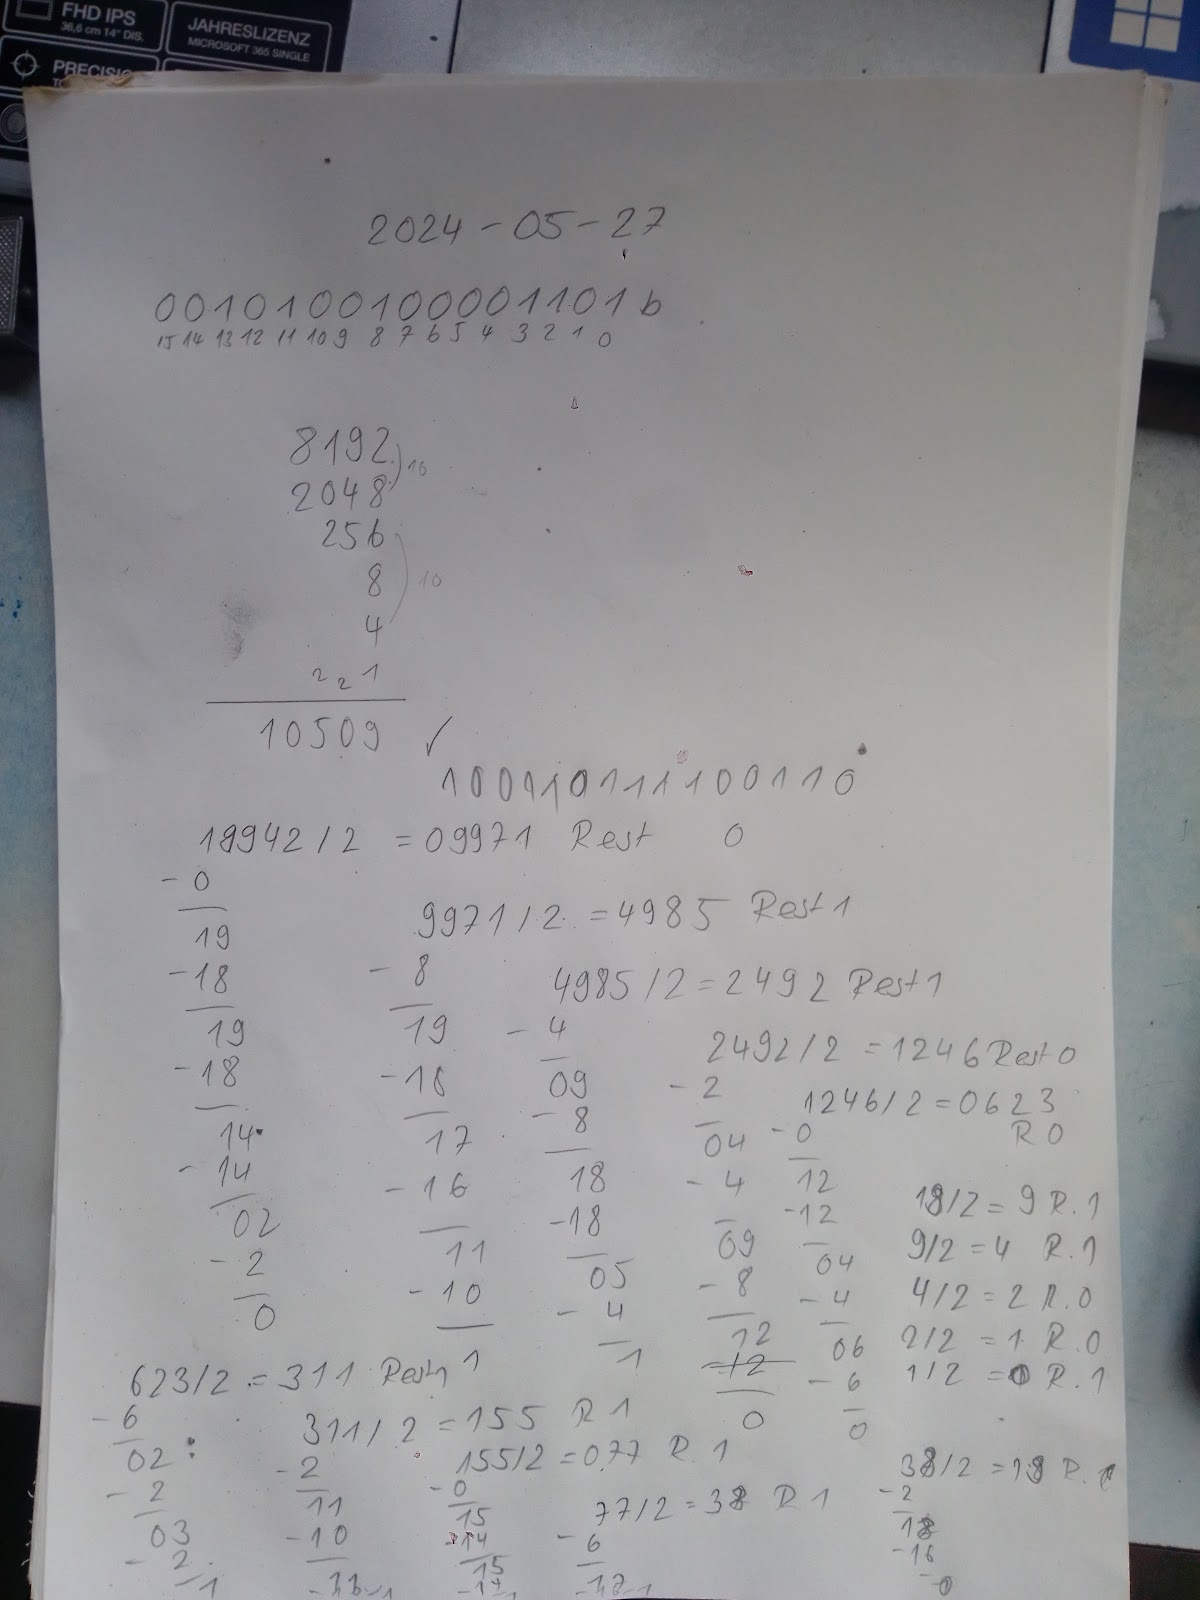 FHD IPS
36,6 cm 14" DIS.
JAHRESLIZENZ
MICROSOFT 365 SINGLE
2024-05-27
0010100100001101 b
15 14 13 12 11 10 9 8 7 6 5 4 3 2 1 0
8192
2048
10
256
8
10
4
2 2 1
10509 ✓
100110111100110
19942/2 = 09971 Rest 0
-0
19
-18
19
-18
14
-14
02
-2
0
9971/2 = 4985 Rest 1
-8
19
-18
17
-16
11
-10
1
4985/2 = 2492 Rest 1
-4
09
-8
18
-18
05
-4
1
2492/2 = 1246 Rest 0
-2
04
-4
09
-8
12
12
0
1246/2 = 0623
R 0
-0
12
-12
04
-4
06
-6
0
18/2 = 9 R. 1
9/2 = 4 R. 1
4/2 = 2 R. 0
2/2 = 1 R. 0
1/2 = 0 R. 1
623/2 = 311 Rest 1
-6
02
-2
03
-2
1
311/2 = 155 R 1
-2
11
-10
155/2 = 077 R. 1
-0
15
-14
15
77/2 = 38 R 1
-6
38/2 = 19 R.
-2
18
-18
0